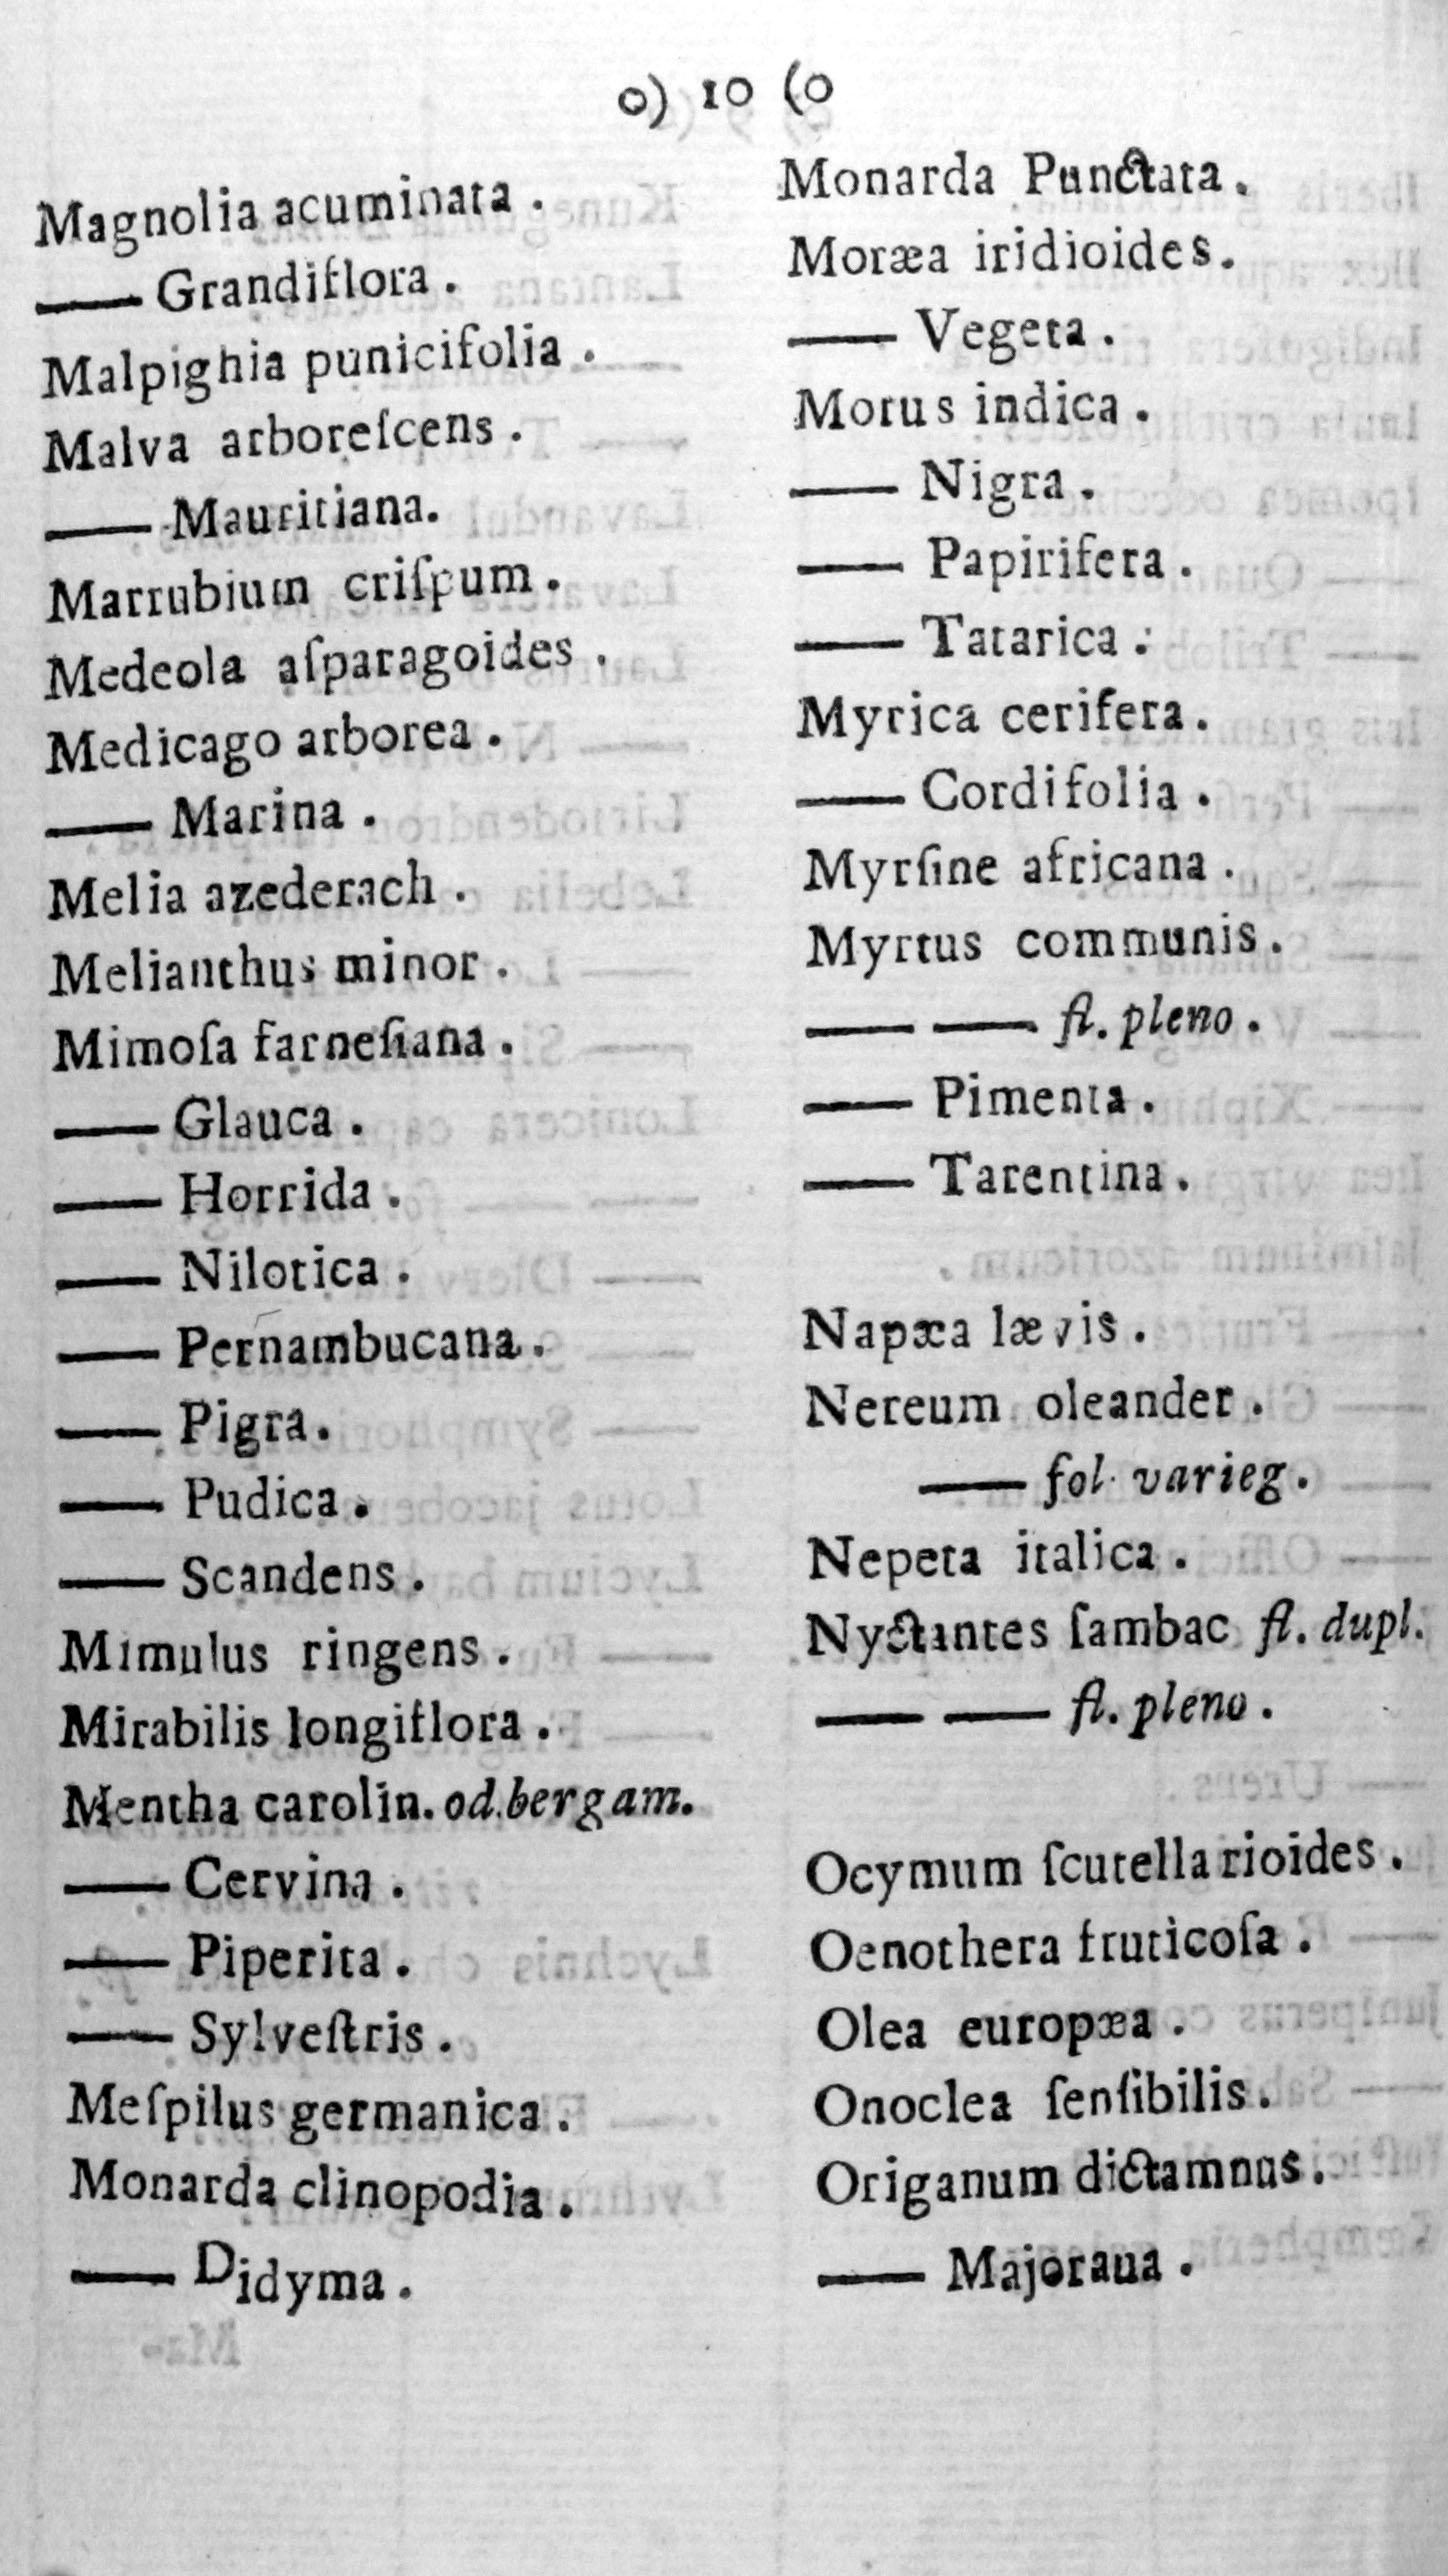 o) 10 (o
Magnolia acuminata .
—— Grandiflora .
Malpighia punicifolia .
Malva arboreſcens .
—— Mauritiana.
Marrubium criſpum .
Medeola aſparagoides .
Medicago arborea .
—— Marina .
Melia azederach .
Melianthus minor .
Mimoſa farneſiana .
—— Glauca .
—— Horrida .
—— Nilotica .
—— Pernambucana .
—— Pigra .
—— Pudica .
—— Scandens .
Mimulus ringens .
Mirabilis longiflora .
Mentha carolin. od.bergam.
—— Cervina .
—— Piperita .
—— Sylveſtris .
Meſpilus germanica .
Monarda clinopodia .
—— Didyma .
Monarda Punctata .
Moræa iridioides .
—— Vegeta .
Morus indica .
—— Nigra .
—— Papirifera .
—— Tatarica .
Myrica cerifera .
—— Cordifolia .
Myrſine africana .
Myrtus communis .
—— —— fl. pleno .
—— Pimenta .
—— Tarentina .
Napæa lævis .
Nereum oleander .
—— fol. varieg .
Nepeta italica .
Nyctantes ſambac fl. dupl.
—— —— fl. pleno .
Ocymum ſcutellarioides .
Oenothera fruticoſa .
Olea europæa .
Onoclea ſenſibilis .
Origanum dictamnus .
—— Majoraua .